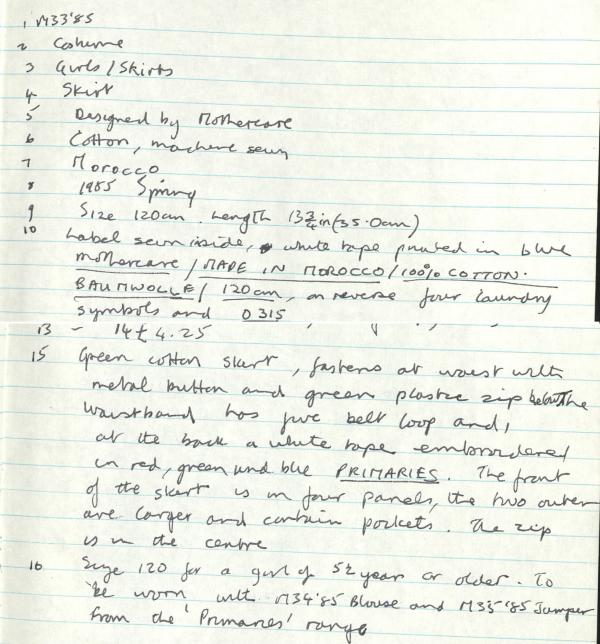 1 M33'85
2 Costume
3 Girls/Skirts
4 Skirt
5 Designed by Mothercare
6 Cotton, machine sewn
7 Morocco
8 1985 Spring
9 Size 120cm. Length 13¾in (35.0cm)
10 Label sewn inside, white tape printed in blue
mothercare / MADE IN MOROCCO / 100% COTTON.
BAUMWOLLE / 120cm, on reverse four laundry
symbols and 0315
13 - 14 £ 4.25
15 Green cotton skirt, fastens at waist with
metal button and green plastic zip below the
waistband has five belt loop and,
at the back a white tape embroidered
in red, green and blue PRIMARIES. The front
of the skirt is in four panels, the two outer
are larger and contain pockets. The zip
is in the centre
16 Size 120 for a girl of 5½ year or older. To
be worn with M34'85 Blouse and M35'85 Jumper
from the 'Primaries' range